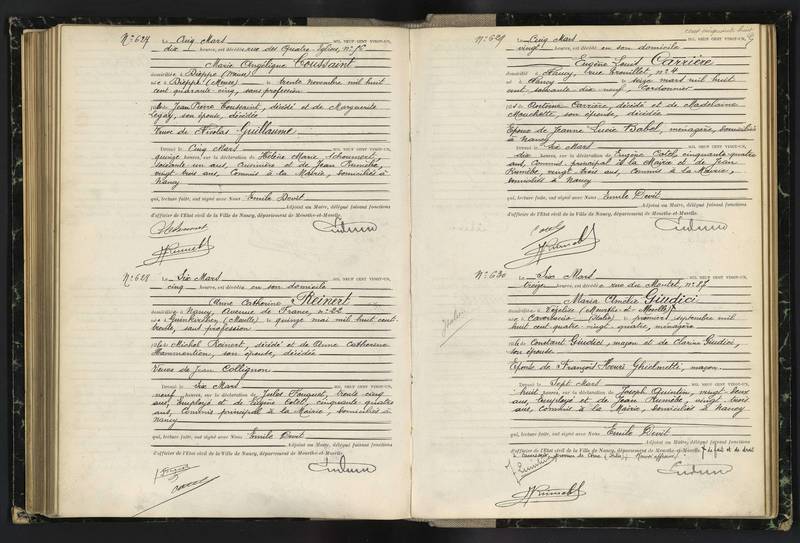 N° 627
Le Cinq Mars MIL NEUF CENT VINGT-UN,
dix heures, est décédée rue des Quatre Eglises, n° 
Marie Angélique Toussaint
domiciliée à Dieppe (Meuse)
née à Dieppe (Meuse) le trente novembre mil huit
cent quarante cinq, sans profession
fille de Jean Pierre Toussaint, décédé et de Marguerite
Legay, son épouse, décédée
Veuve de Nicolas Guillaume
Dressé le Cinq Mars MIL NEUF CENT VINGT-UN,
quinze heures, sur la déclaration de Hélène Marie
soixante un ans, et de Jean Rumèbe,
vingt trois ans, Commis à la Mairie, domiciliés à
Nancy
qui, lecture faite, ont signé avec Nous Emile Devit
Adjoint au Maire, délégué faisant fonctions
d'officier de l'Etat civil de la Ville de Nancy, département de Meurthe-et-Moselle.
N° 628
Le Six Mars MIL NEUF CENT VINGT-UN,
cinq heures, est décédée en son domicile
Anne Catherine Reinert
domiciliée à Nancy, Avenue de France, n° 22
née à Guénkirchen (Moselle) le quinze mai mil huit cent
trente, sans profession
fille de Michel Reinert, décédé et de Anne Catherine
son épouse, décédée
Veuve de Jean Collignon
Dressé le Six Mars MIL NEUF CENT VINGT-UN,
neuf heures, sur la déclaration de Jules trente cinq
ans, Employé et de Eugène Cotel, cinquante quatre
ans, Commis principal à la Mairie, domiciliés à
Nancy
qui, lecture faite, ont signé avec Nous Emile Devit
Adjoint au Maire, délégué faisant fonctions
d'officier de l'Etat civil de la Ville de Nancy, département de Meurthe-et-Moselle.
N° 629
Le Cinq Mars MIL NEUF CENT VINGT-UN,
vingt heures, est décédé en son domicile
Eugène Louis Carrière
domicilié à Nancy, rue n° 4
né à Nancy le seize mars mil huit
cent soixante dix neuf, Cordonnier
fils de Antoine Carrière, décédé et de Madeleine
Mouchette, son épouse, décédée
Epoux de Jeanne Lucie Babel, ménagère, domiciliée
à Nancy
Dressé le Six Mars MIL NEUF CENT VINGT-UN,
dix heures, sur la déclaration de Eugène Cotel, cinquante quatre
ans, Commis principal à la Mairie et de Jean
Rumèbe, vingt trois ans, Commis à la Mairie,
domiciliés à Nancy
qui, lecture faite, ont signé avec Nous Emile Devit
Adjoint au Maire, délégué faisant fonctions
d'officier de l'Etat civil de la Ville de Nancy, département de Meurthe-et-Moselle.
N° 630
Le Six Mars MIL NEUF CENT VINGT-UN,
treize heures, est décédée rue du Montet, n° 87
Maria Amélie Giudici
domiciliée à Vézelise (Meurthe-et-Moselle)
née à (Italie) le premier septembre mil
huit cent quatre-vingt quatre, ménagère
fille de Constant Giudici, maçon et de Clarine Giudici,
son épouse
Epouse de François Ghielmetti, maçon.
Dressé le Sept Mars MIL NEUF CENT VINGT-UN,
huit heures, sur la déclaration de Joseph Quintin, vingt deux
ans, Employé et de Jean Rumèbe, vingt trois
ans, Commis à la Mairie, domiciliés à Nancy
qui, lecture faite, ont signé avec Nous Emile Devit
Adjoint au Maire, délégué faisant fonctions
d'officier de l'Etat civil de la Ville de Nancy, département de Meurthe-et-Moselle x de fait et de droit
à province de Côme (Italie),